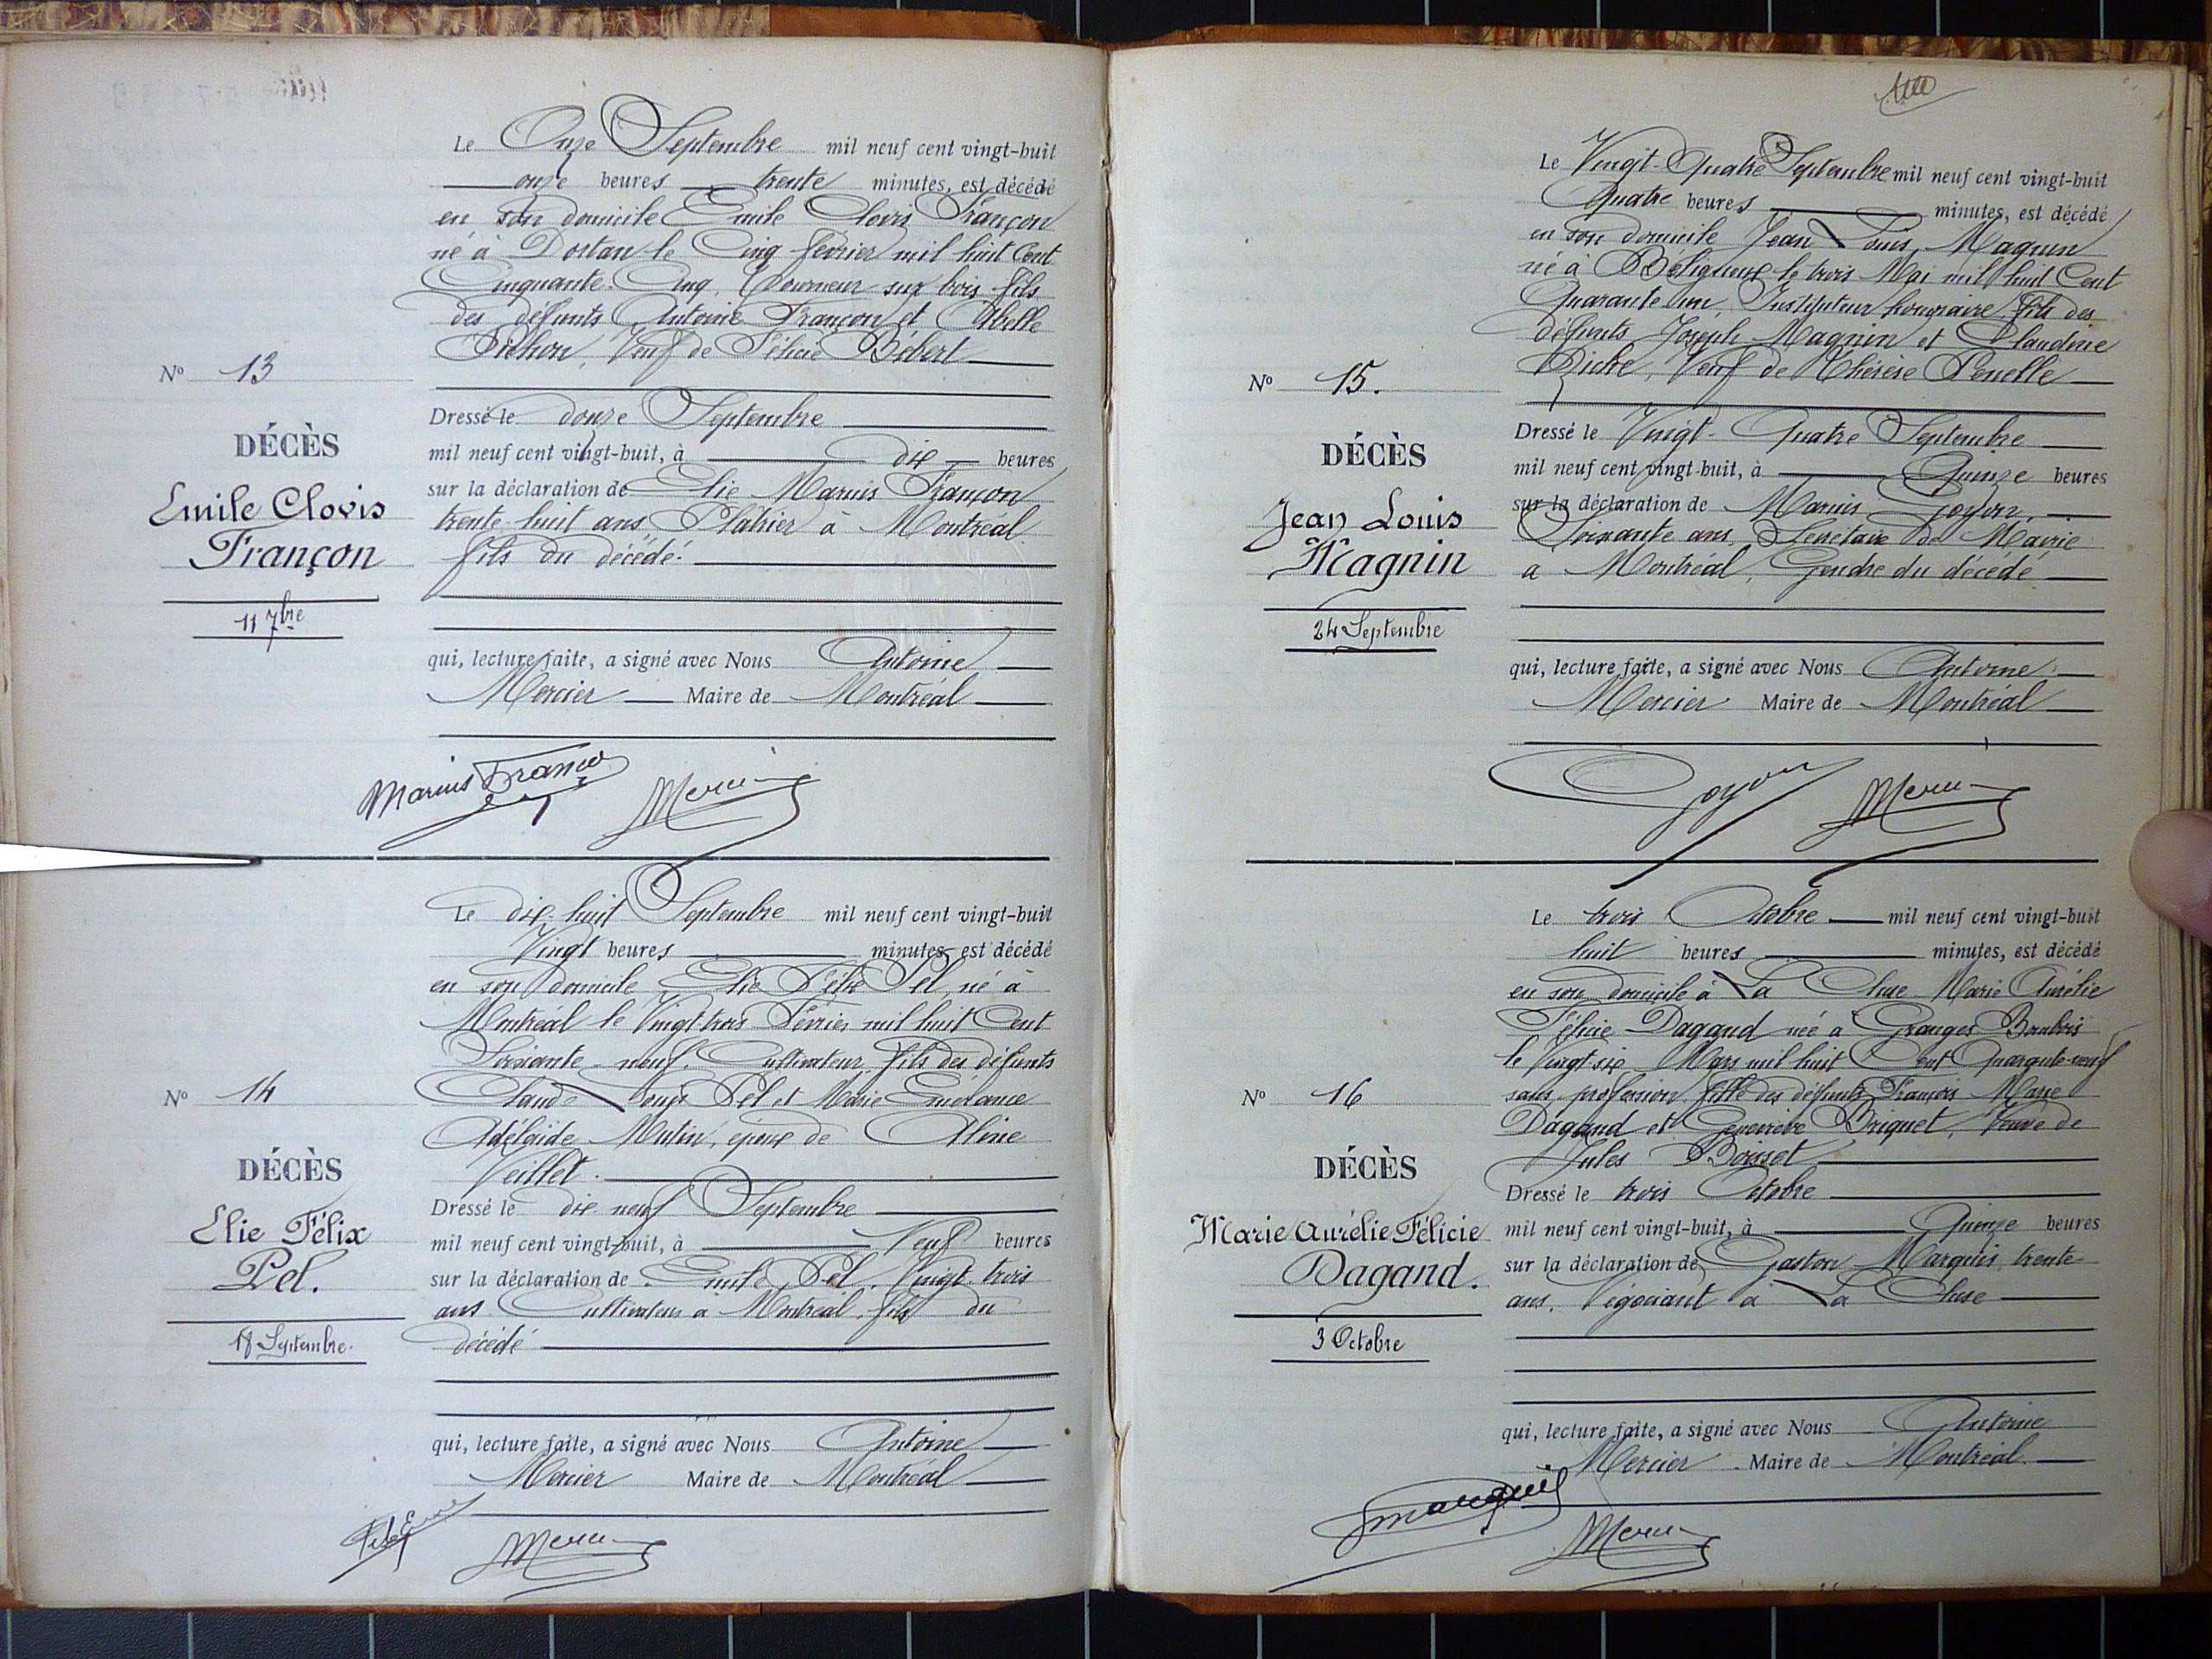 Le Onze Septembre mil neuf cent vingt-huit
onze heures trente minutes, est décédé
en son domicile Emile Clovis Françon
né à Dortan le Cinq février mil huit Cent
Cinquante-Cinq, Tourneur sur bois fils
des défunts Antoine Françon et Abelle
Pichon, Veuf de Félicie Bébert
N° 13
DÉCÈS
Emile Clovis
Françon
11 7bre
Dressé le douze Septembre
mil neuf cent vingt-huit, à dix heures
sur la déclaration de Elie Marius Françon
trente-huit ans Plâtrier à Montréal
fils du décédé.
qui, lecture faite, a signé avec Nous Antoine
Mercier Maire de Montréal
Marius Françon Mercier
Le dix-huit Septembre mil neuf cent vingt-huit
Vingt heures minutes, est décédé
en son domicile Elie Félix Pel, né à
Montréal le Vingt trois Février mil huit Cent
Soixante-neuf. Cultivateur, fils des défunts
Claude Louis Pel et Marie Emérance
Adélaïde Mutin, époux de Aline
Veillet.
N° 14
DÉCÈS
Elie Félix
Pel.
18 Septembre.
Dressé le dix-neuf Septembre
mil neuf cent vingt-huit, à Neuf heures
sur la déclaration de Emile Pel, Vingt-trois
ans Cultivateur à Montréal, fils du
décédé
qui, lecture faite, a signé avec Nous Antoine
Mercier Maire de Montréal
Mercier
Le Vingt-Quatre Septembre mil neuf cent vingt-huit
Quatre heures minutes, est décédé
en son domicile Jean Louis Magnin
né à Béligneux le trois Mai mil huit Cent
Quarante un, Instituteur honoraire fils des
défunts Joseph Magnin et Claudine
Veuf de Thérèse Penelle
N° 15.
DÉCÈS
Jean Louis
Magnin
24 Septembre
Dressé le Vingt-Quatre Septembre
mil neuf cent vingt-huit, à Quinze heures
sur la déclaration de Marius Goyon,
Soixante ans, Secrétaire de Mairie
à Montréal, Gendre du décédé
qui, lecture faite, a signé avec Nous Antoine
Mercier Maire de Montréal
Goyon Mercier
Le trois Octobre mil neuf cent vingt-huit
huit heures minutes, est décédé
en son domicile à La Cluse Marie Aurélie
Félicie Dagand née à Granges Bombois
le Vingt-six Mars mil huit Cent Quarante-neuf
sans profession fille des défunts François Marie
Dagand et Geneviève Briquet, Veuve de
Jules Boisset
N° 16
DÉCÈS
Marie Aurélie Félicie
Dagand.
3 Octobre
Dressé le trois Octobre
mil neuf cent vingt-huit, à Quinze heures
sur la déclaration de Gaston Marquis trente
ans, Négociant à La Cluse
qui, lecture faite, a signé avec Nous Antoine
Mercier Maire de Montréal
Gmarquis
Mercier